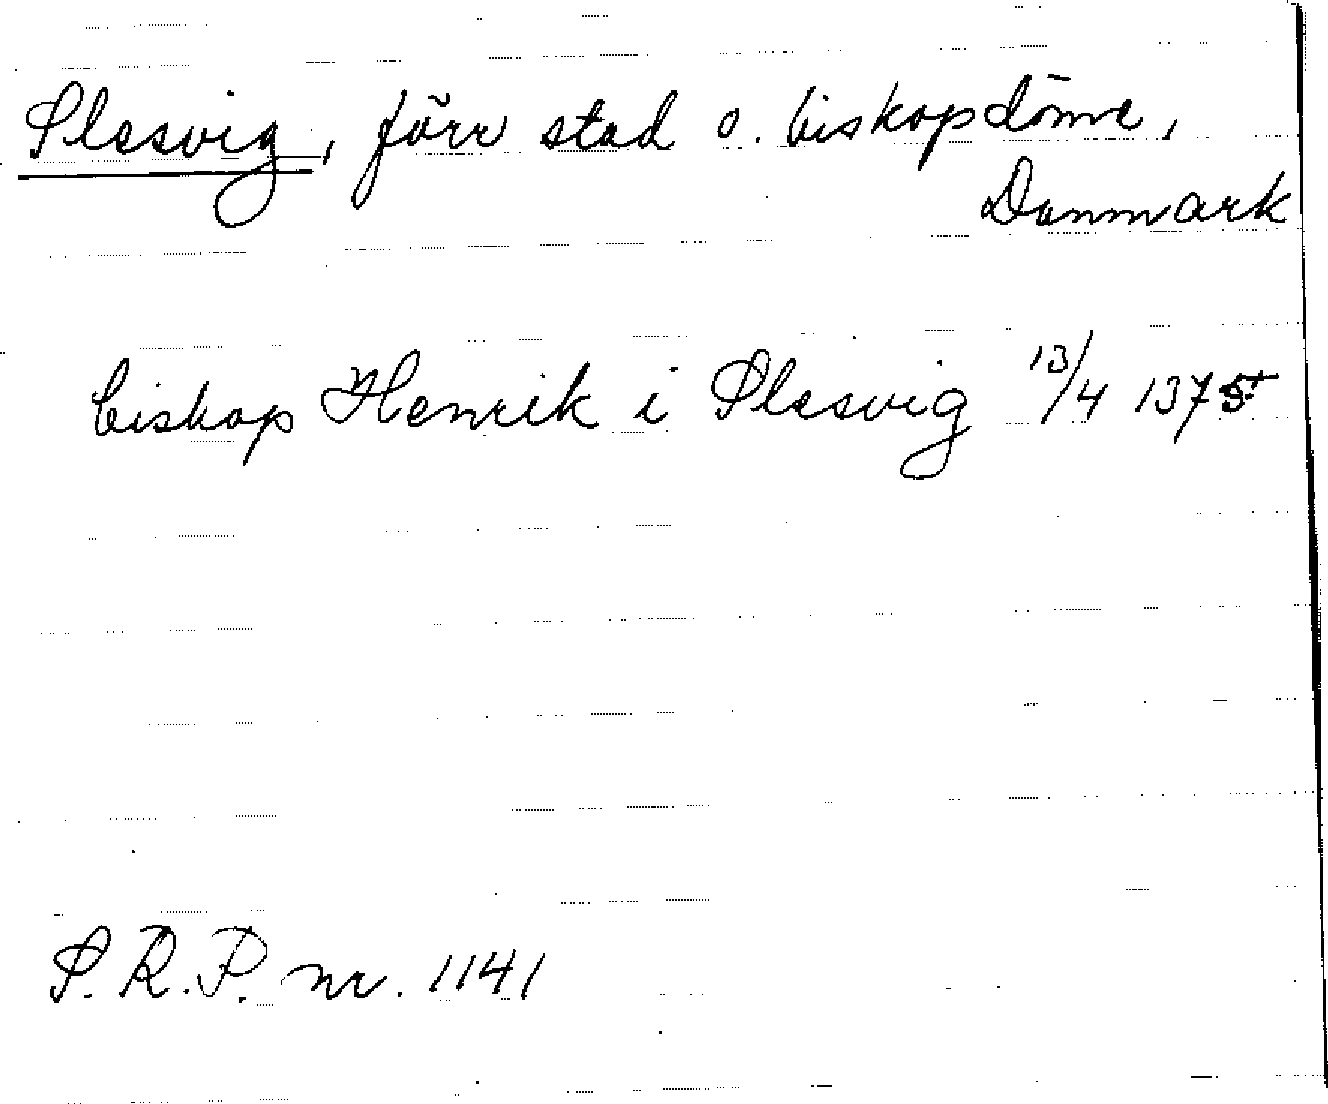 Slesvig, förr stad o. biskopdöme,
Danmark
biskop Henrik i Slesvig 13/4 1375
S.R.P. nr. 1141